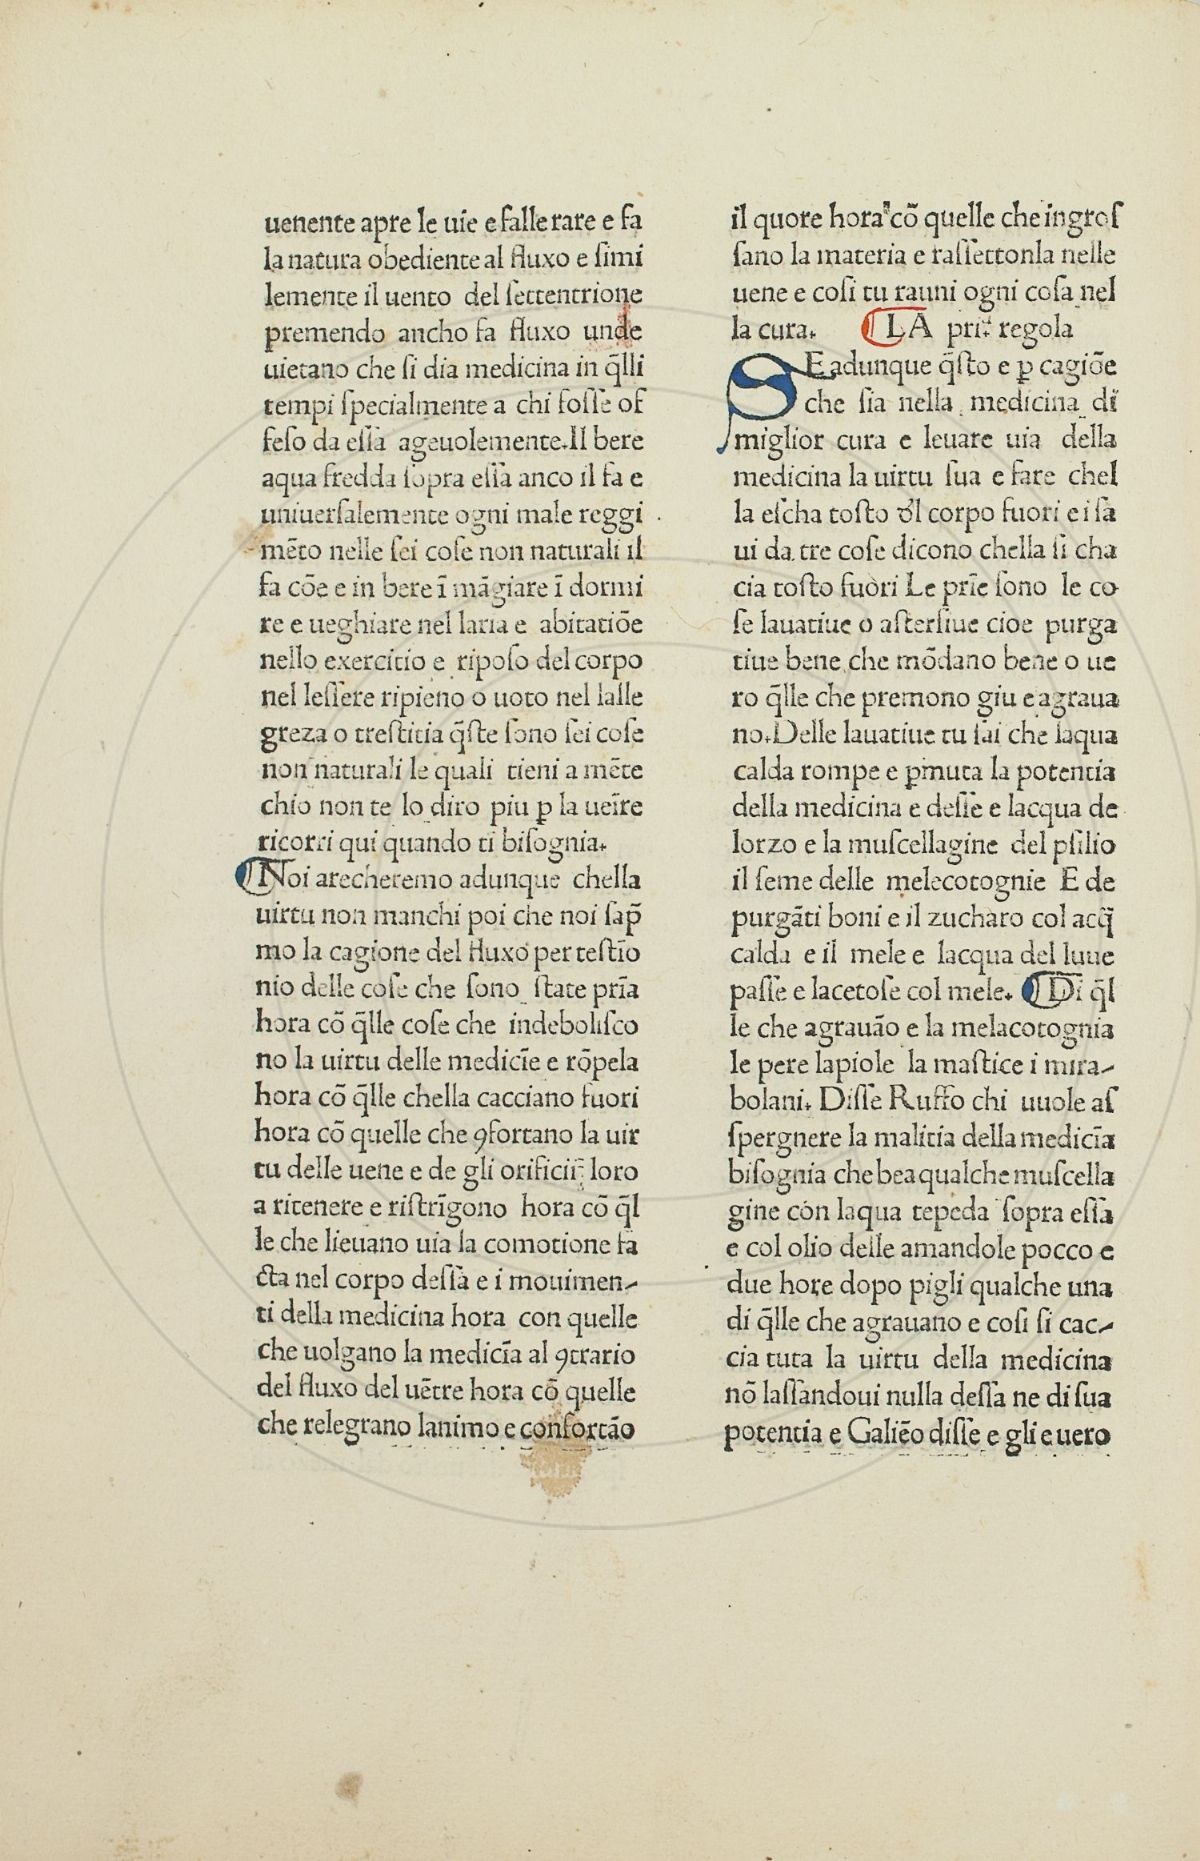 uenente apre le uie e falle rare e fa
la natura obediente al fluxo e simi
lemente il uento del settentrione
premendo ancho fa fluxo unde
uietano che si dia medicina in q̄lli
tempi specialmente a chi fosse of
feso da essa ageuolemente.Il bere
aqua fredda sopra essa anco il fa e
uniuersalemente ogni male reggi
mēto nelle sei cose non naturali il
fa cōe e in bere ī māgiare ī dormi
re e ueghiare nel laria e abitatiōe
nello exercitio e riposo del corpo
nel lessere ripieno o uoto nel lalle
greza o trestitia q̄ste sono sei cose
non naturali le quali tieni a mēte
chio non te lo diro piu ꝑ la ueīre
ricorri qui quando ti bisognia.
Noi arecheremo adunque chella
uirtu non manchi poi che noi sap̄
mo la cagione del fluxo per testīo
nio delle cose che sono state prīa
hora cō q̄lle cose che indebolisco
no la uirtu delle medicīe e rōpela
hora cō q̄lle chella cacciano fuori
hora cō quelle che ꝯfortano la uir
tu delle uene e de gli orificii loro
a ritenere e ristrīgono hora cō q̄l
le che lieuano uia la comotione fa
cta nel corpo dessa e i mouimen-
ti della medicina hora con quelle
che uolgano la medicīa al ꝯtrario
del fluxo del uētre hora cō quelle
che relegrano lanimo e confortāo
il quore hora cō quelle che ingros
sano la materia e rassettonla nelle
uene e cosi tu rauni ogni cosa nel
la cura. LA pri᷑ regola
SE adunque q̄sto e ꝑ cagiōe
che sia nella medicina di
miglior cura e leuare uia della
medicina la uirtu sua e fare chel
la escha tosto d̄l corpo fuori e i sa
ui da tre cose dicono chella si cha
cia tosto fuori Le prīe sono le co
se lauatiue o astersiue cioe purga
tiue bene che mōdano bene o ue
ro q̄lle che premono giu e agraua
no.Delle lauatiue tu sai che laqua
calda rompe e ꝑmuta la potentia
della medicina e desse e lacqua de
lorzo e la muscellagine del psilio
il seme delle melecotognie E de
purgāti boni e il zucharo col acq̄
calda e il mele e lacqua del luue
passe e lacetose col mele. Di q̄l
le che agrauāo e la melacotognia
le pere lapiole la mastice i mira-
bolani. Disse Ruffo chi uuole as
spergnere la malitia della medicīa
bisognia che bea qualche muscella
gine con laqua tepeda sopra essa
e col olio delle amandole pocco e
due hore dopo pigli qualche una
di q̄lle che agrauano e cosi si cac-
cia tuta la uirtu della medicina
nō lassandoui nulla dessa ne di sua
potentia e Galiēo disse e gli e uero